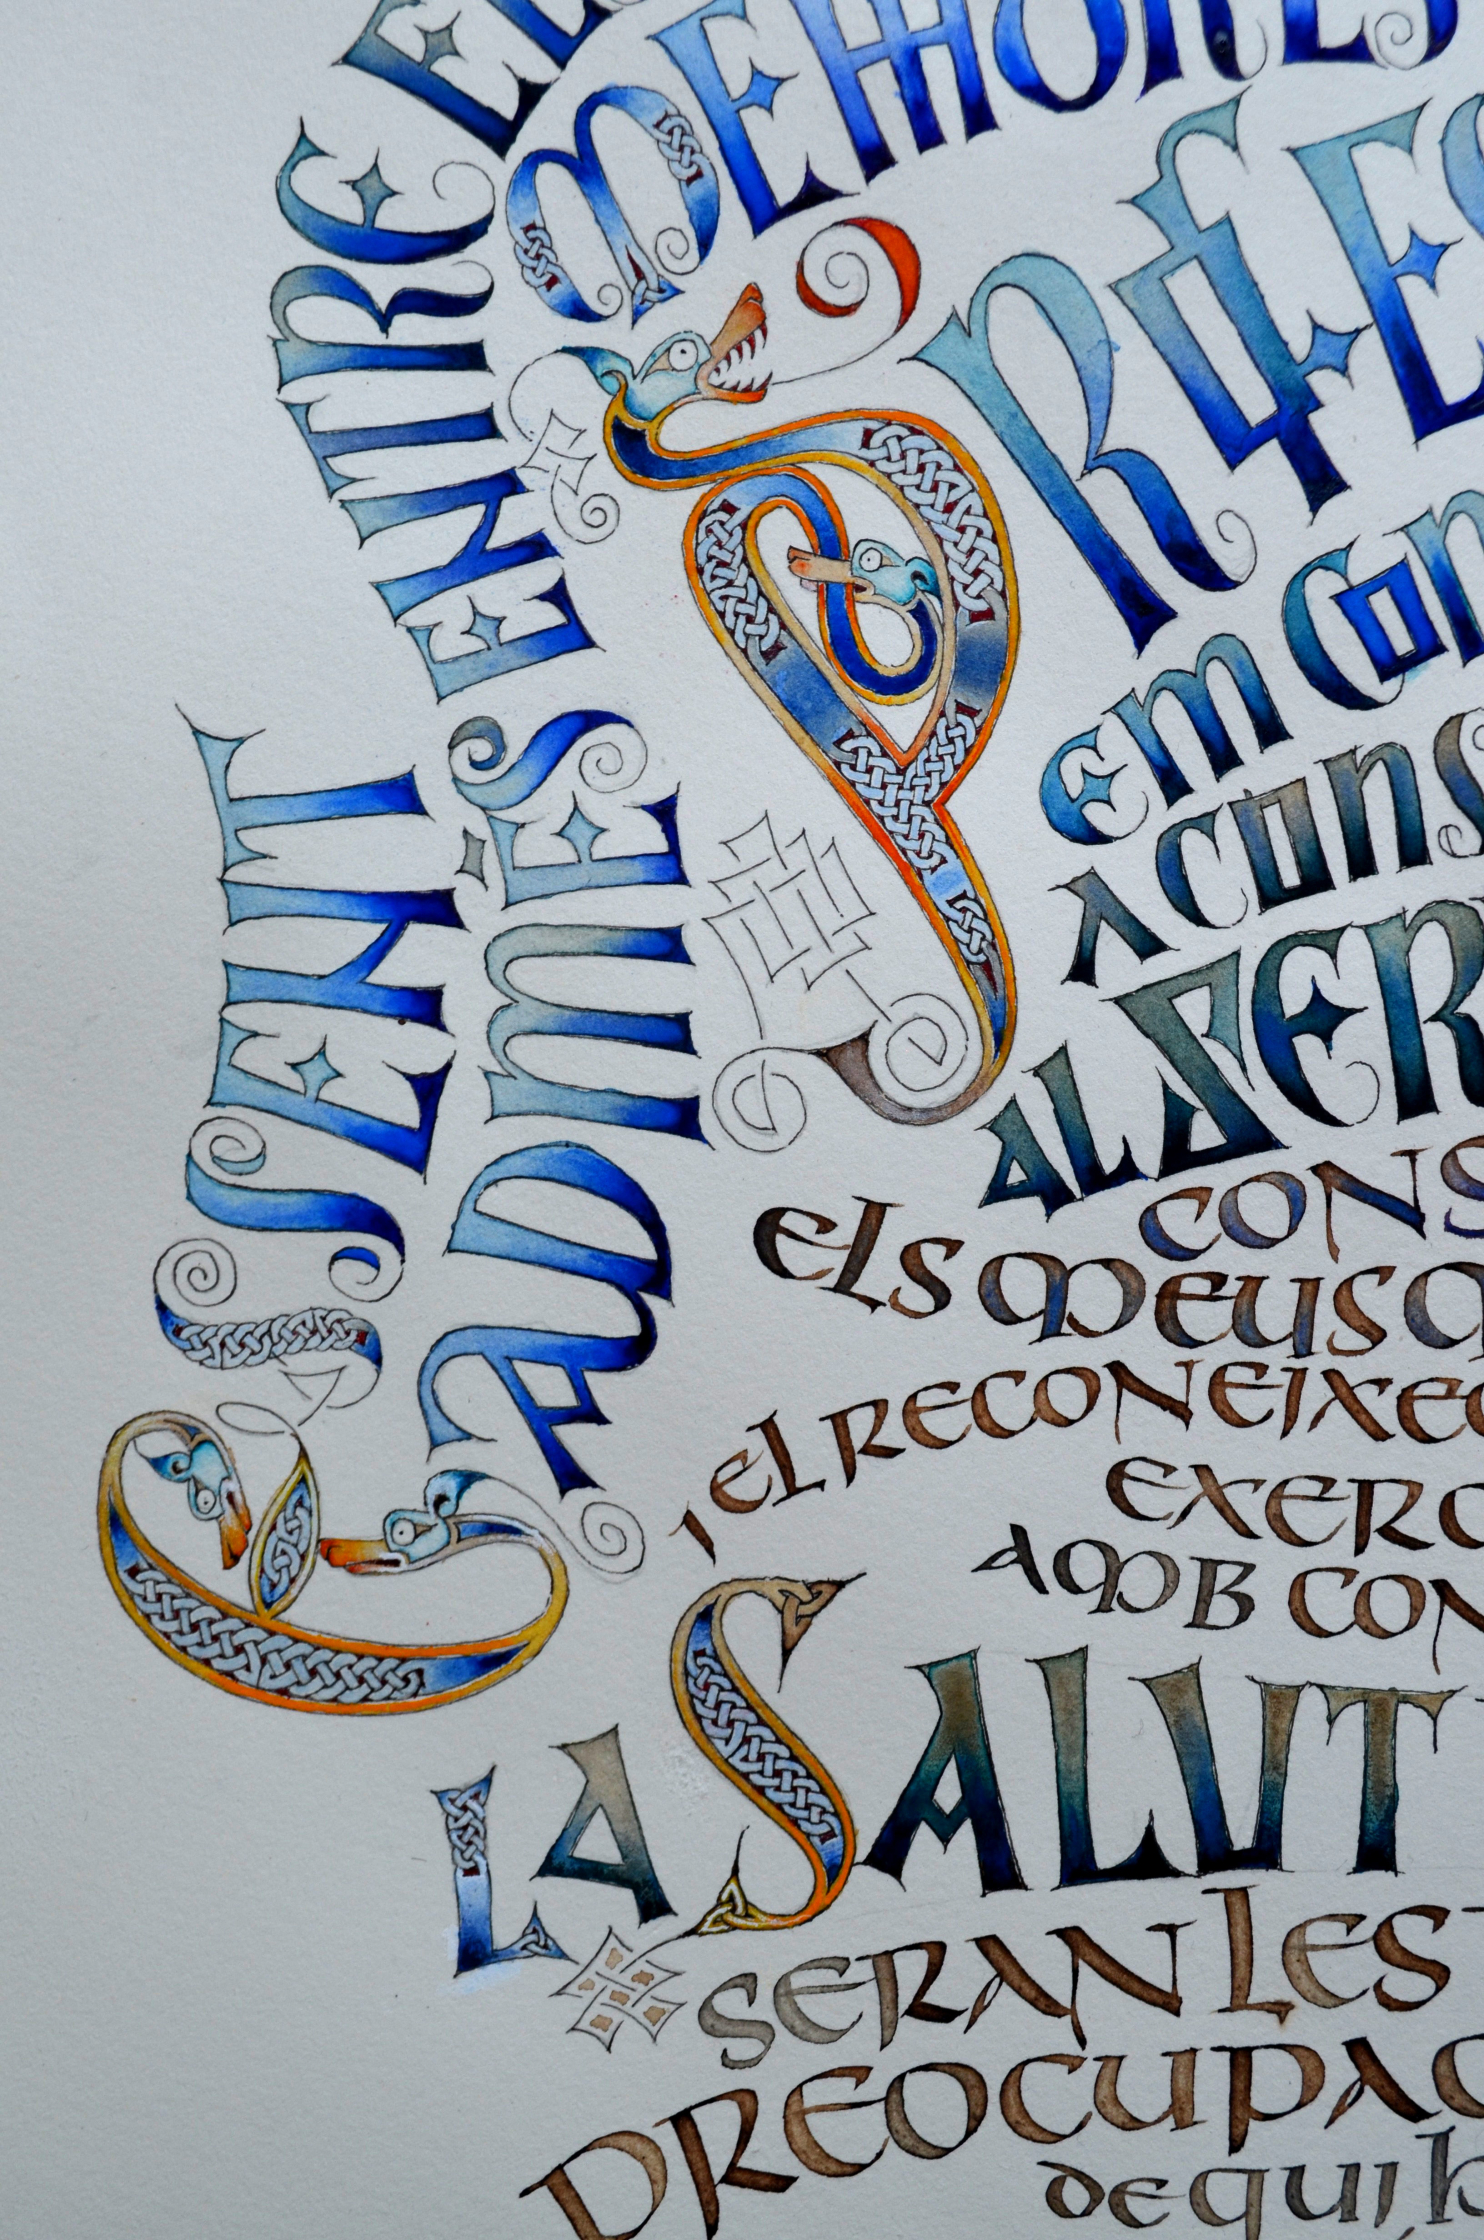 ESSENT
ADMÈS ENTRE EL
MEMBRES
PROFES
EM CO
A CONS
AL SER
CONS
ELS MEUS M
I EL RECONEIXE
EXERC
AMB CON
LA SALUT
SERAN LES
PREOCUPAC
DE QUI h